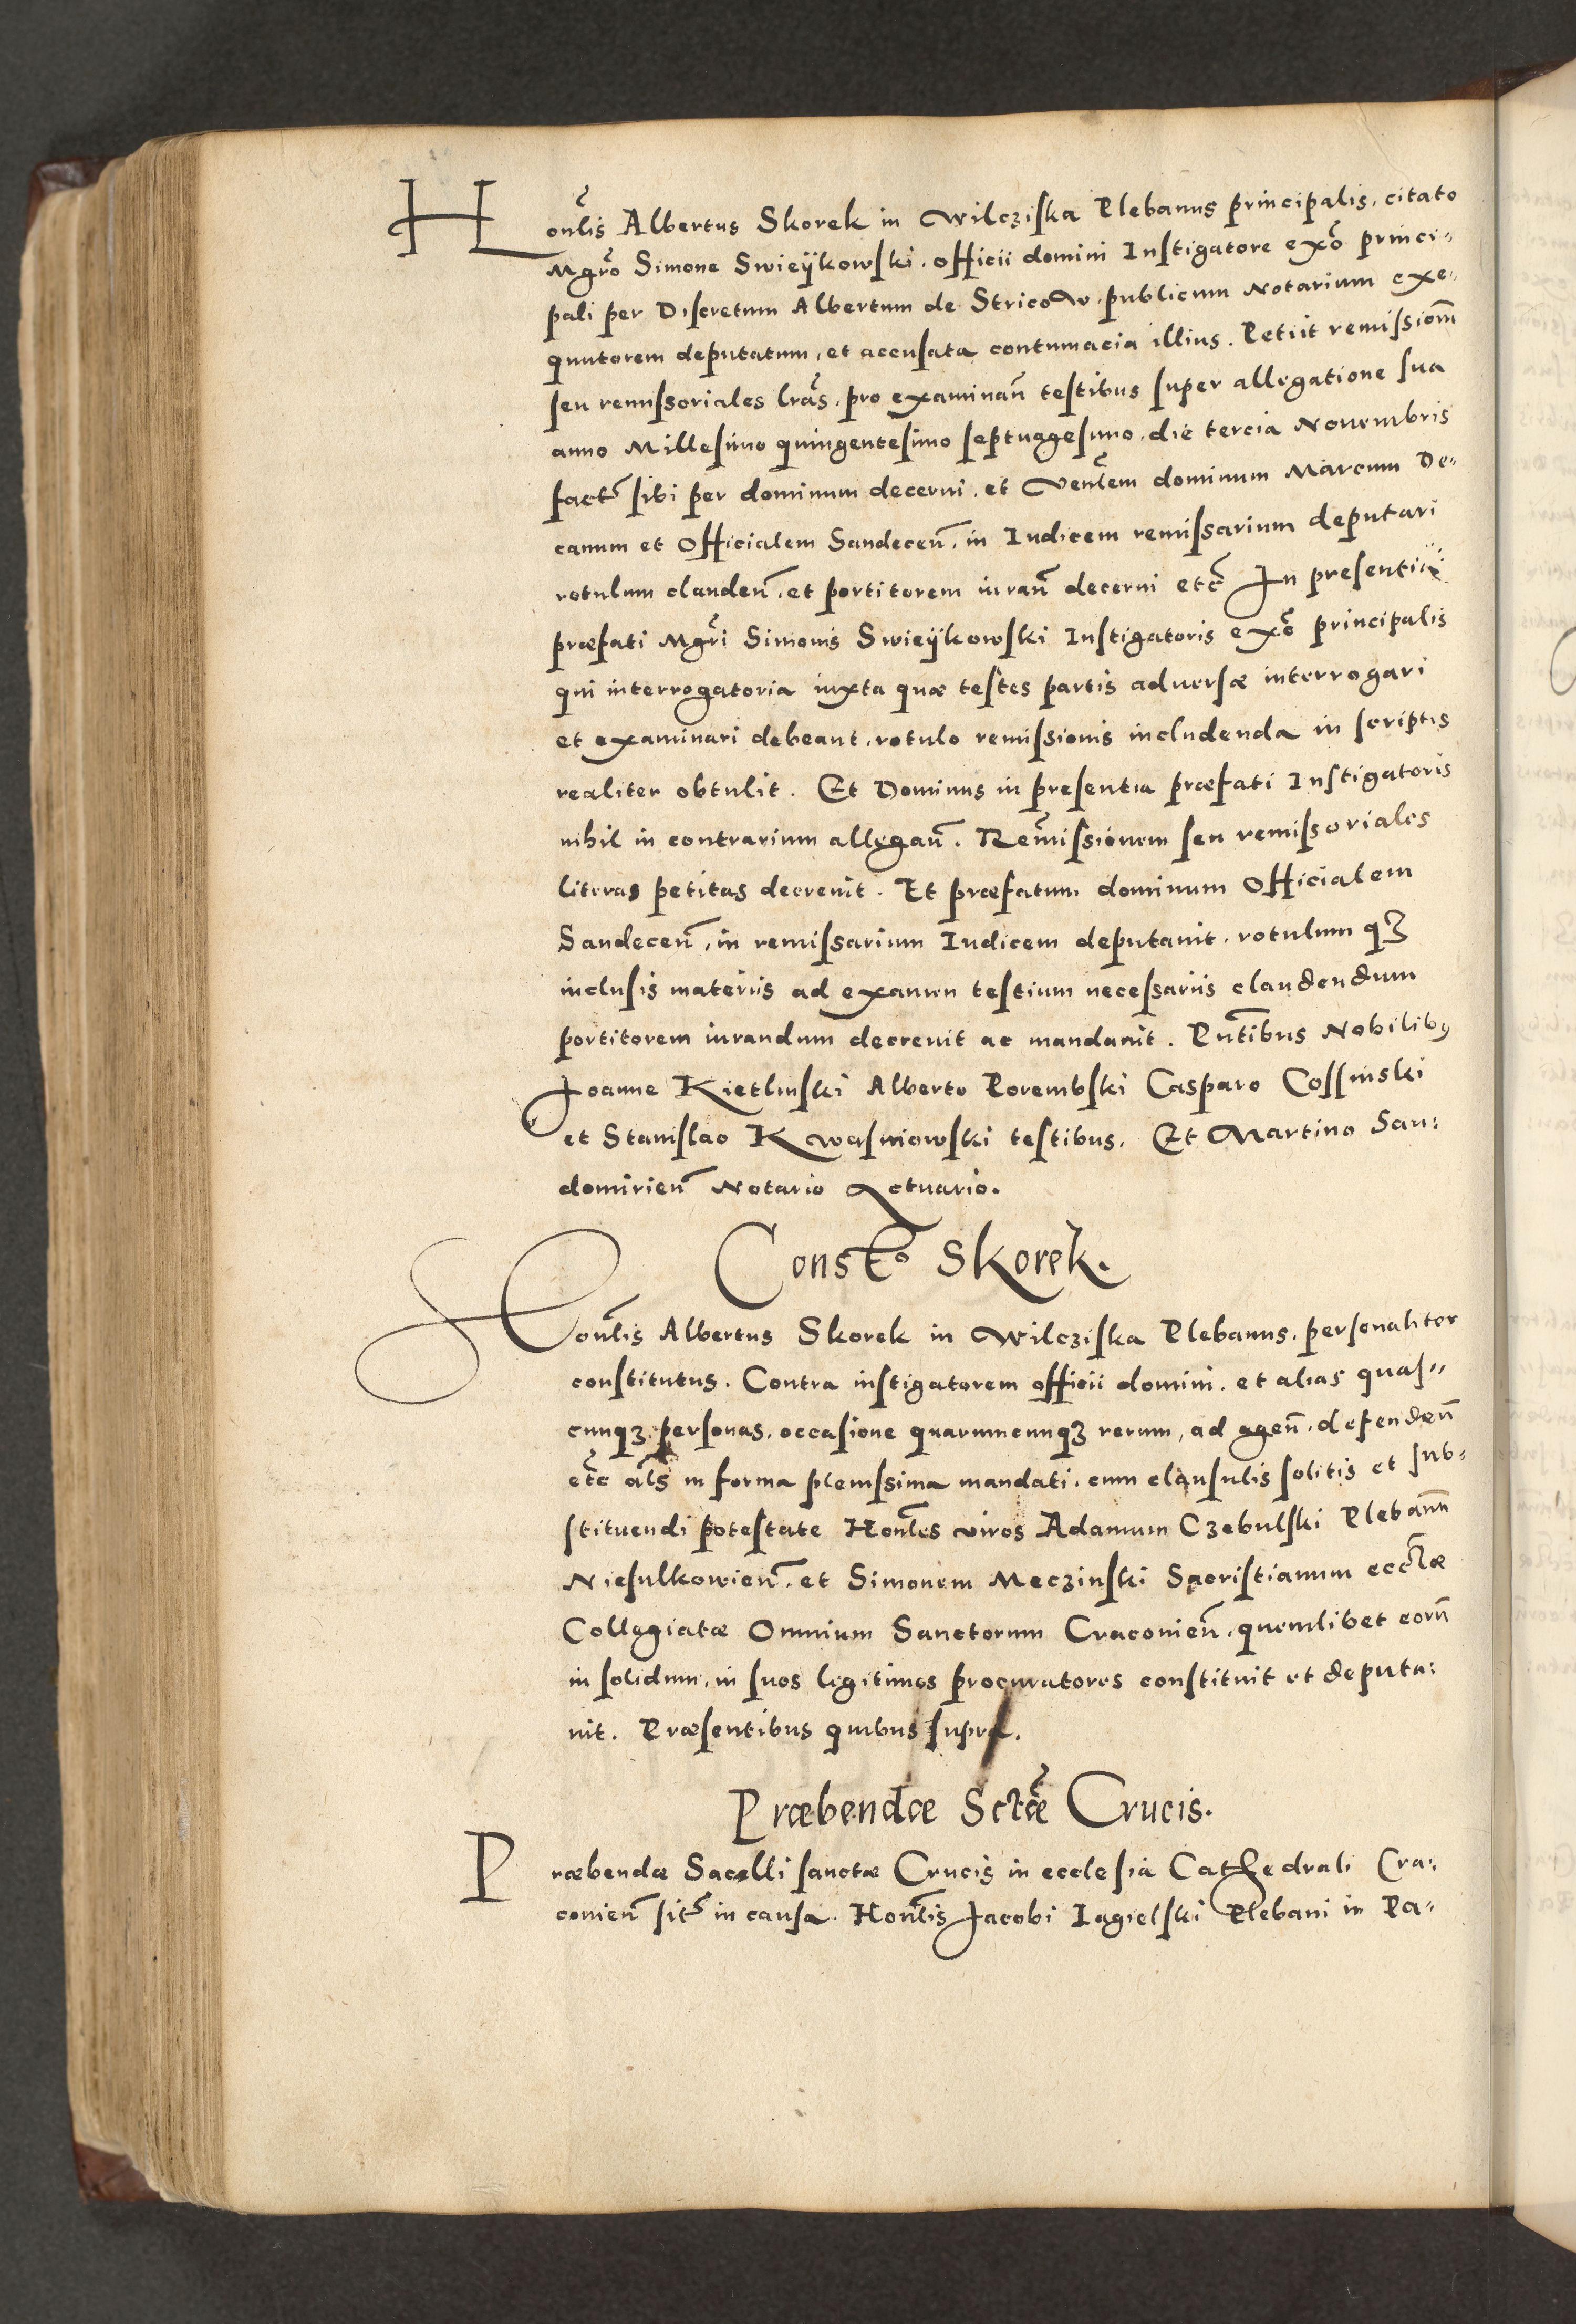 Honlis Albertus Skorek in Wilcziska Plebanus principalis, citato
Mgro Simone Swieÿkowski. officii domini Instigatore exo princi-
pali per Discretum Albertum de Stricow publicum Notarium exe-
quutorem deputatum, et accusata contumacia illius. Petiit remissionem
seu remissoriales lras, pro examinan testibus super allegatione sua
anno Millesimo quingentesimo septuagesimo, die tercia Nouembris
fact sibi per dominum decerni, et Venlem dominum Marcum De-
canum et Officialem Sandecen, in Iudicem remissarium deputari
rotulum clauden, et portitorem iuran decerni etc In presentia
præfati Mgri Simonis Swieÿkowski Instigatoris exo principalis
qui interrogatoria iuxta quæ testes partis aduersæ interrogari
et examinari debeant, rotulo remissionis includenda in scriptis
realiter obtulit. Et Dominus in presentia præfati Instigatoris
nihil in contrarium allegan. Remissionem seu remissoriales
literas petitas decreuit. Et præfatum dominum Officialem
Sandecen, in remissarium Iudicem deputauit, rotulum qꝫ
inclusis materiis ad examen testium necessariis claudendum
portitorem iurandum decreuit ac mandauit. Pntibus Nobilibꝰ
Joanne Kietlinski Alberto Porembski Casparo Cossinski
et Stanislao Kwasniowski testibus. Et Martino San:
domirien Notario Actuario.
Consto Skorek.
Honlis Albertus Skorek in Wilcziska Plebanus, personaliter
constitutus. Contra instigatorem officii domini, et alias quas-
cunqꝫ personas, occasione quarumcunqꝫ rerum, ad agen, defenden
etc als in forma plenissima mandati, cum clausulis solitis et sub-
stituendi potestate Honles viros Adamum Czebulski Plebanum
Niesulkowien, et Simonem Meczinski Sacristianum ecclæ
Collegiatæ Omnium Sanctorum Cracouien, quemlibet eorum
in solidum, in suos legitimos procuratores constituit et deputa:
uit. Præsentibus quibus supra.
Præbendæ Sctæ Crucis.
Præbendæ Sacelli sanctæ Crucis in ecclesia Cathedrali Cra:
couien sit in causa. Honlis Jacobi Iagielski Plebani in Pa-